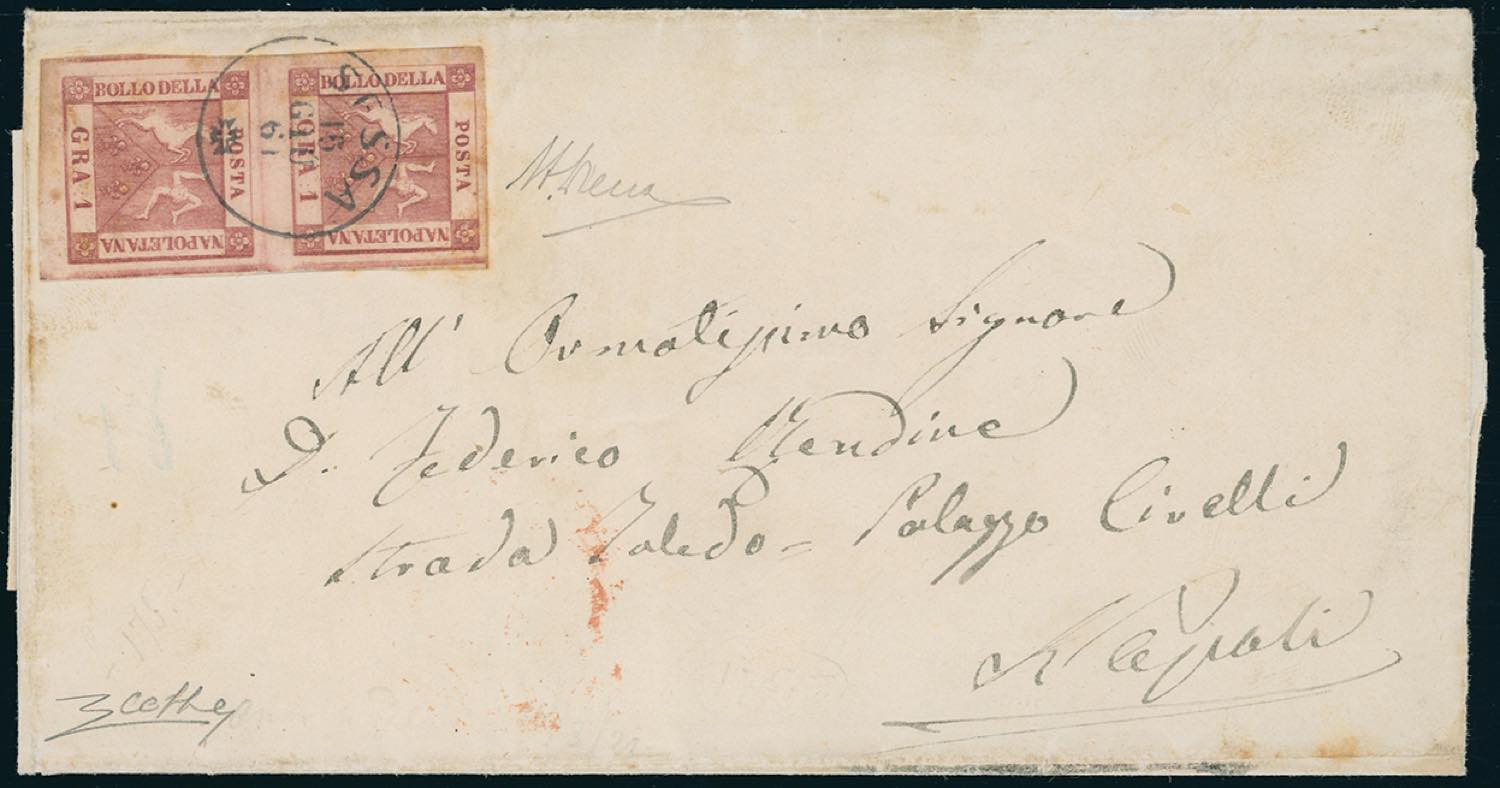 BOLLO DELLA
POSTA
NAPOLETANA
GRA 1
BOLLO DELLA
POSTA
NAPOLETANA
GRA 1
SESSA
15
GIU
61
All' Ornatissimo Signore
D. Federico
Strada Toledo = Palazzo Civelli
Napoli